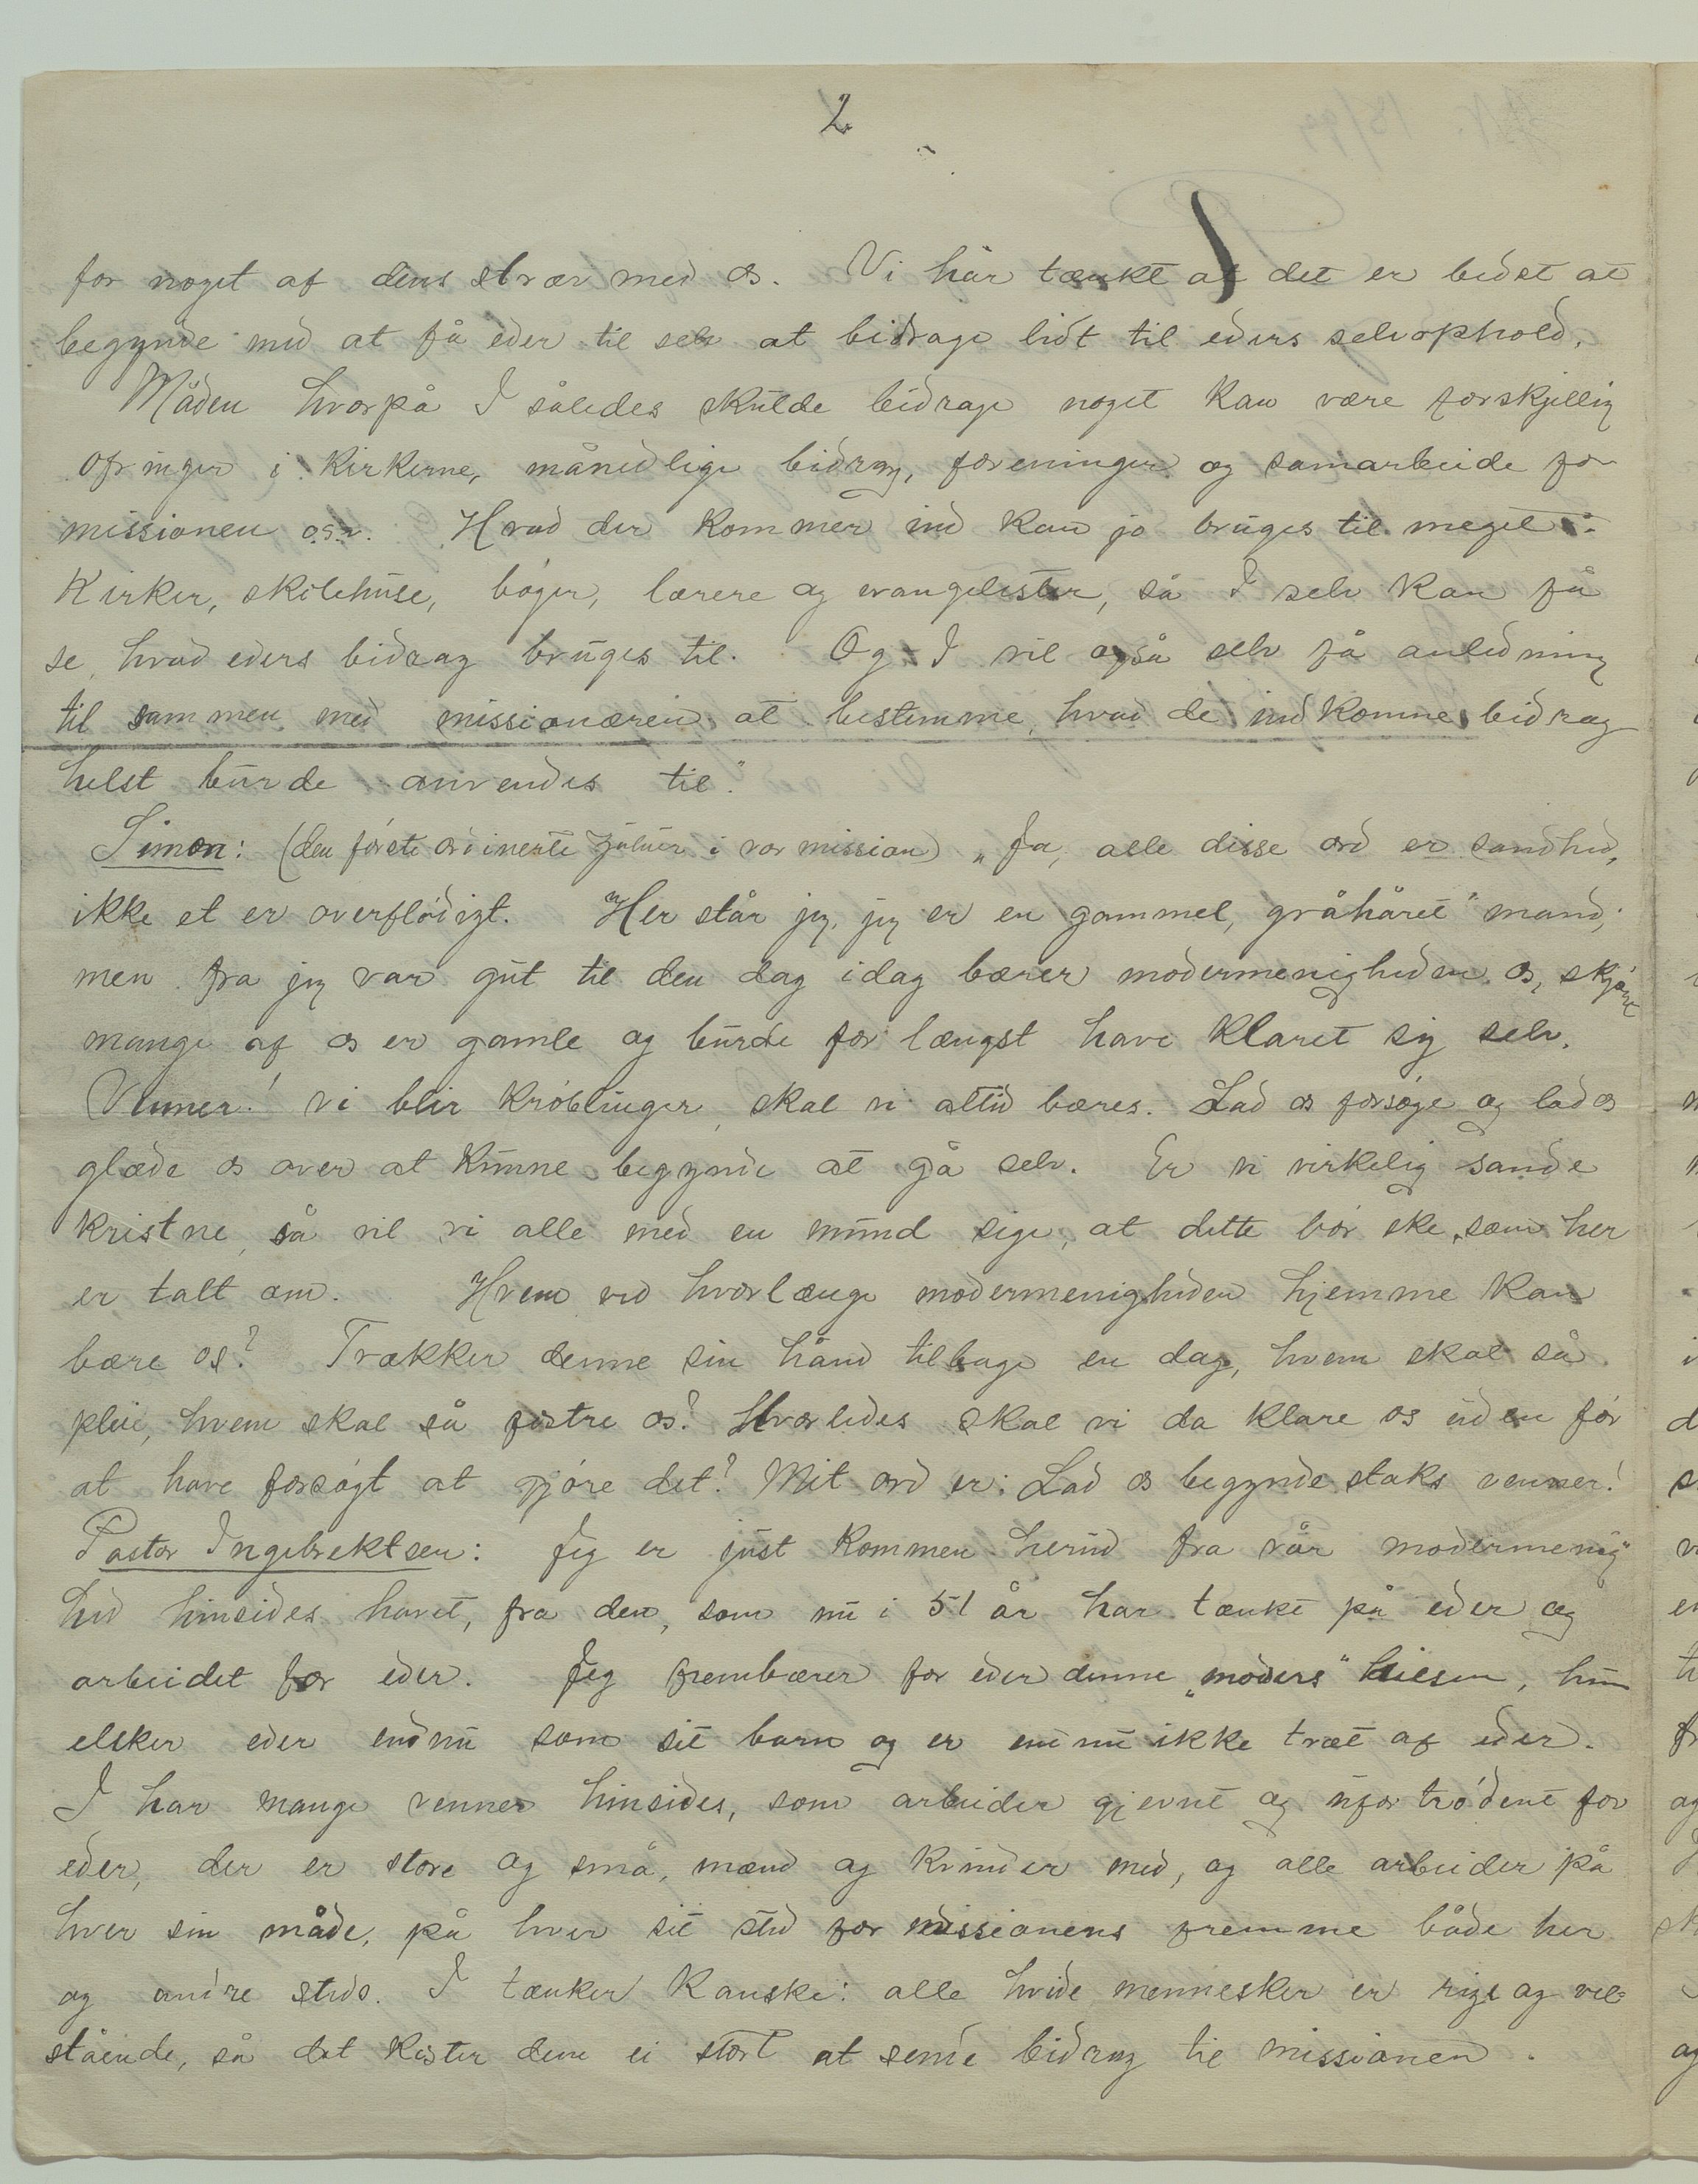 2
for noget af dens stræv med os. Vi har tænkt at det er bedst at
begynde med at få eder til selv at bidrage lidt til eders selvophold.
Måden hvorpå I således skulde bidrage noget kan være forskjellig
ofringer i kirkerne, månedlige bidrag, foreninger og samarbeide for
missionen o.s.v. Hvad der kommer ind kan jo bruges til meget:
Kirker, skolehuse, bøger, lærere og evangelister, så I selv kan få
se, hvad eders bidrag bruges til. Og I vil også selv få anledning
til sammen med missionæren at bestemme, hvad de indkomne bidrag
helst burde anvendes til."
Simon: (den første ordinerte zuluer i vor mission) „Ja, alle disse ord er sandhed,
ikke et er overflødigt. Her står jeg, jeg er en gammel, gråhåret mand;
men fra jeg var gut til den dag idag bærer modermenigheden os, skjønt
mange af os er gamle og burde for længst have klaret sig selv.
Venner! vi blir krøblinger, skal vi altid bæres. Lad os forsøge og lad os
glæde os over at kunne begynde at gå selv. Er vi virkelig sande
kristne, så vil vi alle med en mund sige, at dette bør ske, som her
er talt om. Hvem ved hvorlænge modermenigheden hjemme kan
bære os? Trækker denne sin hånd tilbage en dag, hvem skal så
pleie, hvem skal så fostre os? Hvorledes skal vi da klare os uden før
at have forsøgt at gjøre det? Mit ord er: Lad os begynde straks venner!
Pastor Ingebrektsen: Jeg er just kommen herud fra vår modermenig-
hed hinsides havet, fra den, som nu i 51 år har tænkt på eder og
arbeidet for eder. Jeg frembærer for eder denne „moders" hilsen, hun
elsker eder endnu som sit barn og er endnu ikke træt af eder.
I har mange venner hinsides, som arbeider gjevnt og ufortrødent for
eder, der er store og små, mænd og kvinder med, og alle arbeider på
hver sin måde, på hver sit sted for missionens fremme både her
og andre steds. I tænker kanske: alle hvide mennesker er rige og vel-
stående, så det koster dem ei stort at sende bidrag til missionen.